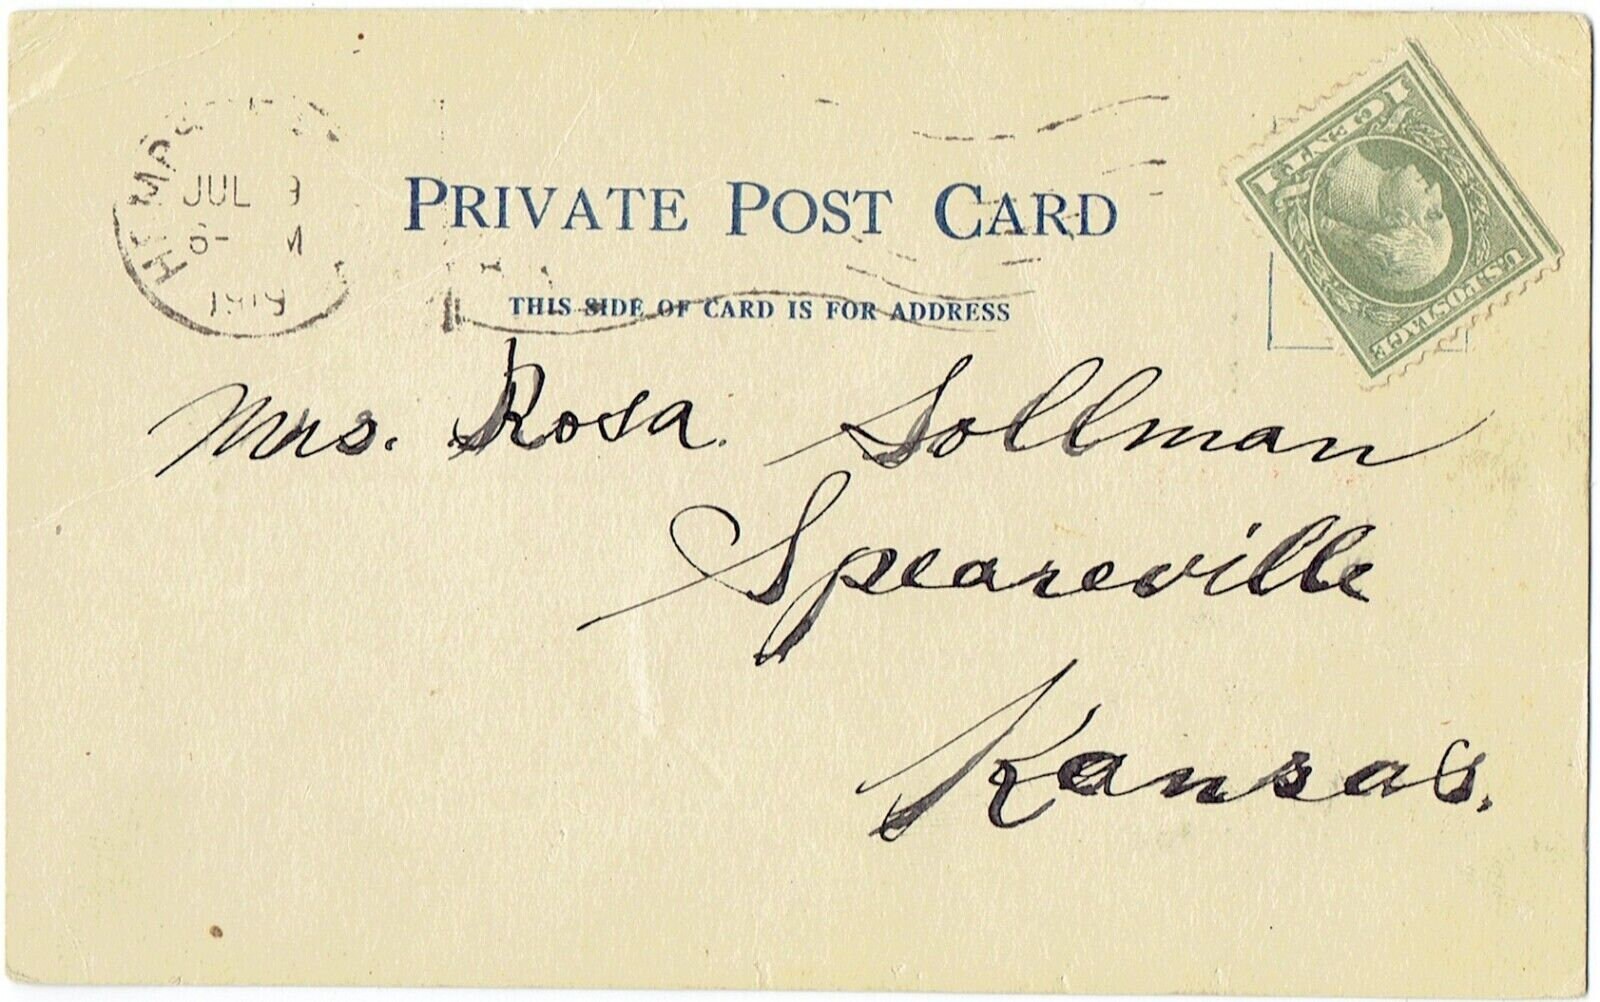 JUL
1919
PRIVATE POST CARD
THIS SIDE OF CARD IS FOR ADDRESS
1 CENT 1
U.S. POSTAGE
Mrs. Rosa. Sollman
Speareville
Kansas.